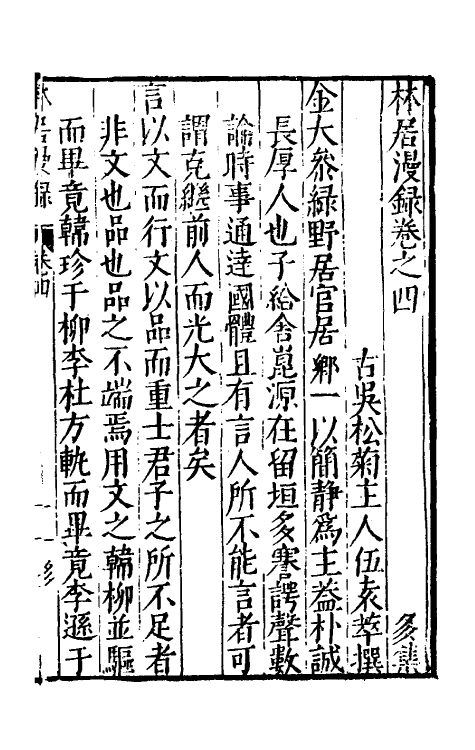 林居漫録卷之四
多集
古吳松菊主人伍袁萃撰
金大叅緑野居官居鄉一以簡静爲主葢朴誠
長厚人也子給舍嵬源在留垣多謇諤聲數
論時事通達國體且有言人所不能言者可
謂克繼前人而光大之者矣
言以文而行文以品而重士君子之所不足者
非文也品也品之不端焉用文之韓柳並驅
而畢竟韓珍于柳李杜方軌而畢竟李遜于
林居漫録
卷四
一